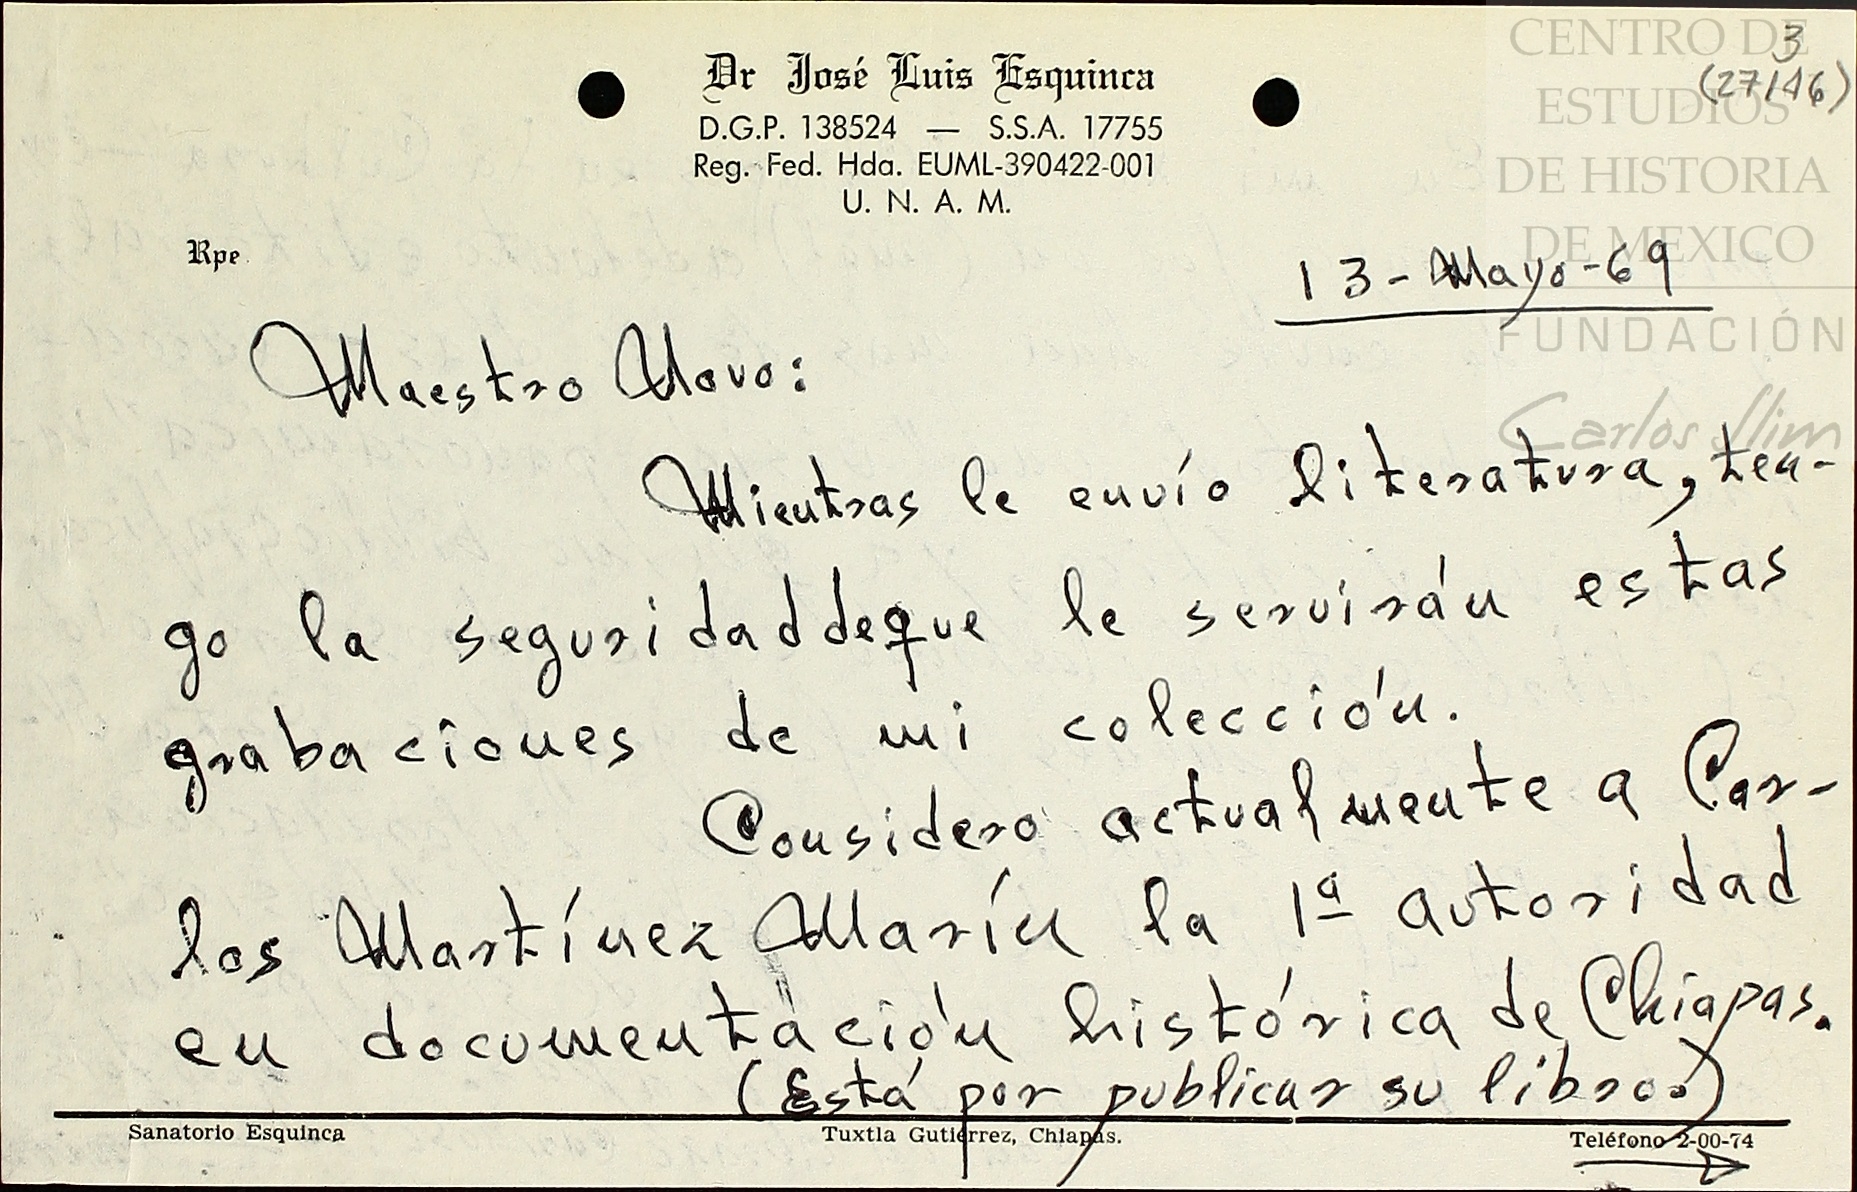 CENTRO DE
ESTUDIOS
DE HISTORIA
DE MEXICO
FUNDACIÓN
Carlos Slim
3
(27146)
Dr José Luis Esquinca
D.G.P. 138524 — S.S.A. 17755
Reg. Fed. Hda. EUML-390422-001
U. N. A. M.
Rpe.
13-Mayo-69
Maestro Novo:
Mientras le envío literatura, ten-
go la seguridad de que le servirán estas
grabaciones de mi colección.
Considero actualmente a Car-
los Martínez Marín la 1ª autoridad
en documentación histórica de Chiapas.
(Está por publicar su libro.)
Sanatorio Esquinca
Tuxtla Gutiérrez, Chiapas.
Teléfono 2-00-74